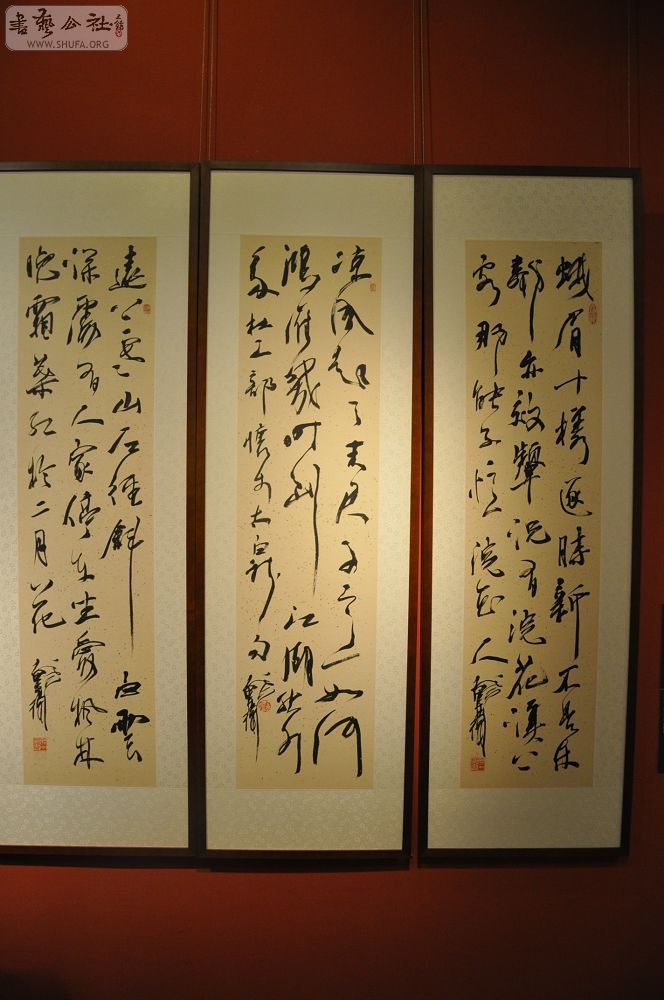 書藝公社
WWW.SHUFA.ORG
蛾眉十樣逐時新不是
鄰亦效顰況有浣花溪上
客那能不憶浣花人
涼風起天末君子意如何
鴻雁幾時到江湖秋水
多杜工部懷李太白詩句
遠上寒山石徑斜白雲
深處有人家停車坐愛楓林
晚霜葉紅於二月花